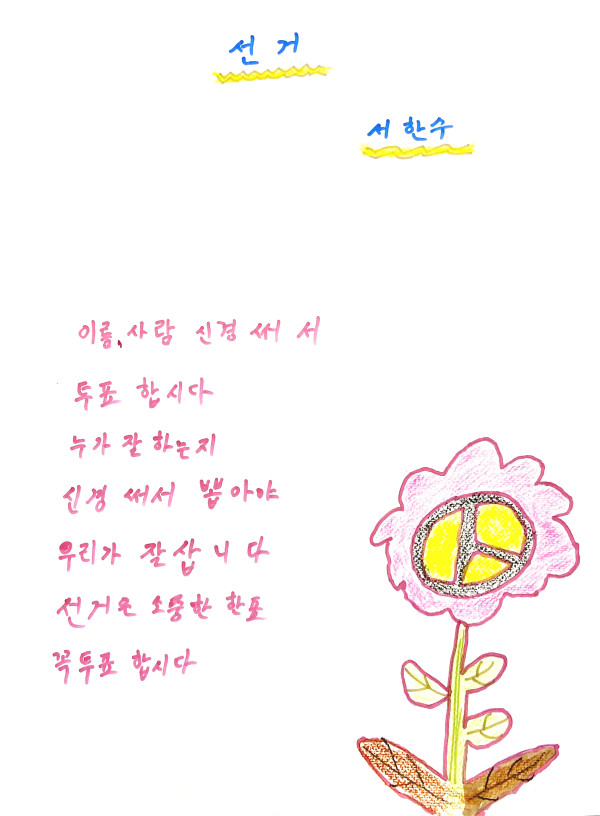 선거
서한수
이름, 사람 신경 써 서
투표 합시다
누가 잘 하는지
신경 써서 뽑아야
우리가 잘삽니다
선거는 소중한 한표
꼭투표 합시다